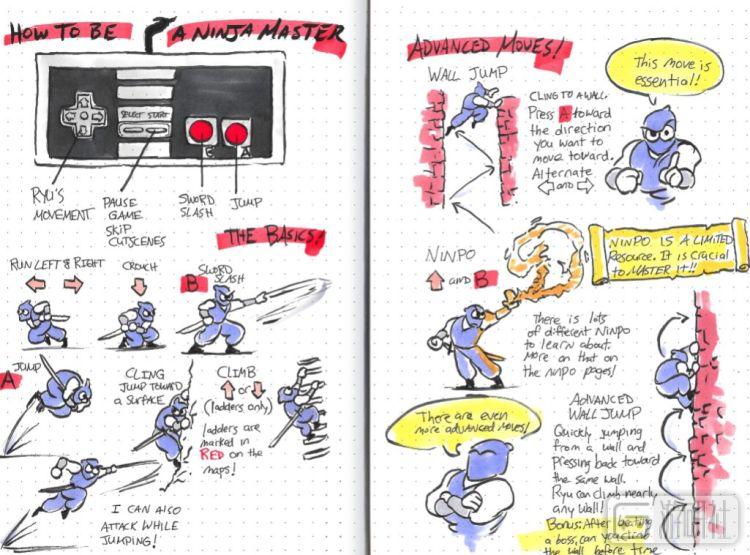 HOW TO BE A NINJA MASTER
SELECT START
B A
RYU'S
MOVEMENT
PAUSE
GAME
SKIP
CUTSCENES
SWORD
SLASH
JUMP
THE BASICS!
RUN LEFT & RIGHT
CROUCH
B SWORD
SLASH
A JUMP
CLING
JUMP TOWARD
A SURFACE
CLIMB
or
(ladders only)
ladders are
marked in
RED on the
maps!
I CAN ALSO
ATTACK WHILE
JUMPING!
ADVANCED MOVES!
WALL JUMP
CLING TO A WALL.
Press A toward
the direction
you want to
move toward.
Alternate
and
This move is
essential!
NINPO
and B
NINPO IS A LIMITED
Resource. It is crucial
to MASTER it!!
There is lots
of different NINPO
to learn about.
More on that on
the NINPO pages!
There are even
more advanced moves!
ADVANCED
WALL JUMP
Quickly jumping
from a wall and
Pressing back toward
the same wall.
Ryu can climb nearly
any wall!
Bonus: After beating
a boss, can you cling
the wall before time
游研社